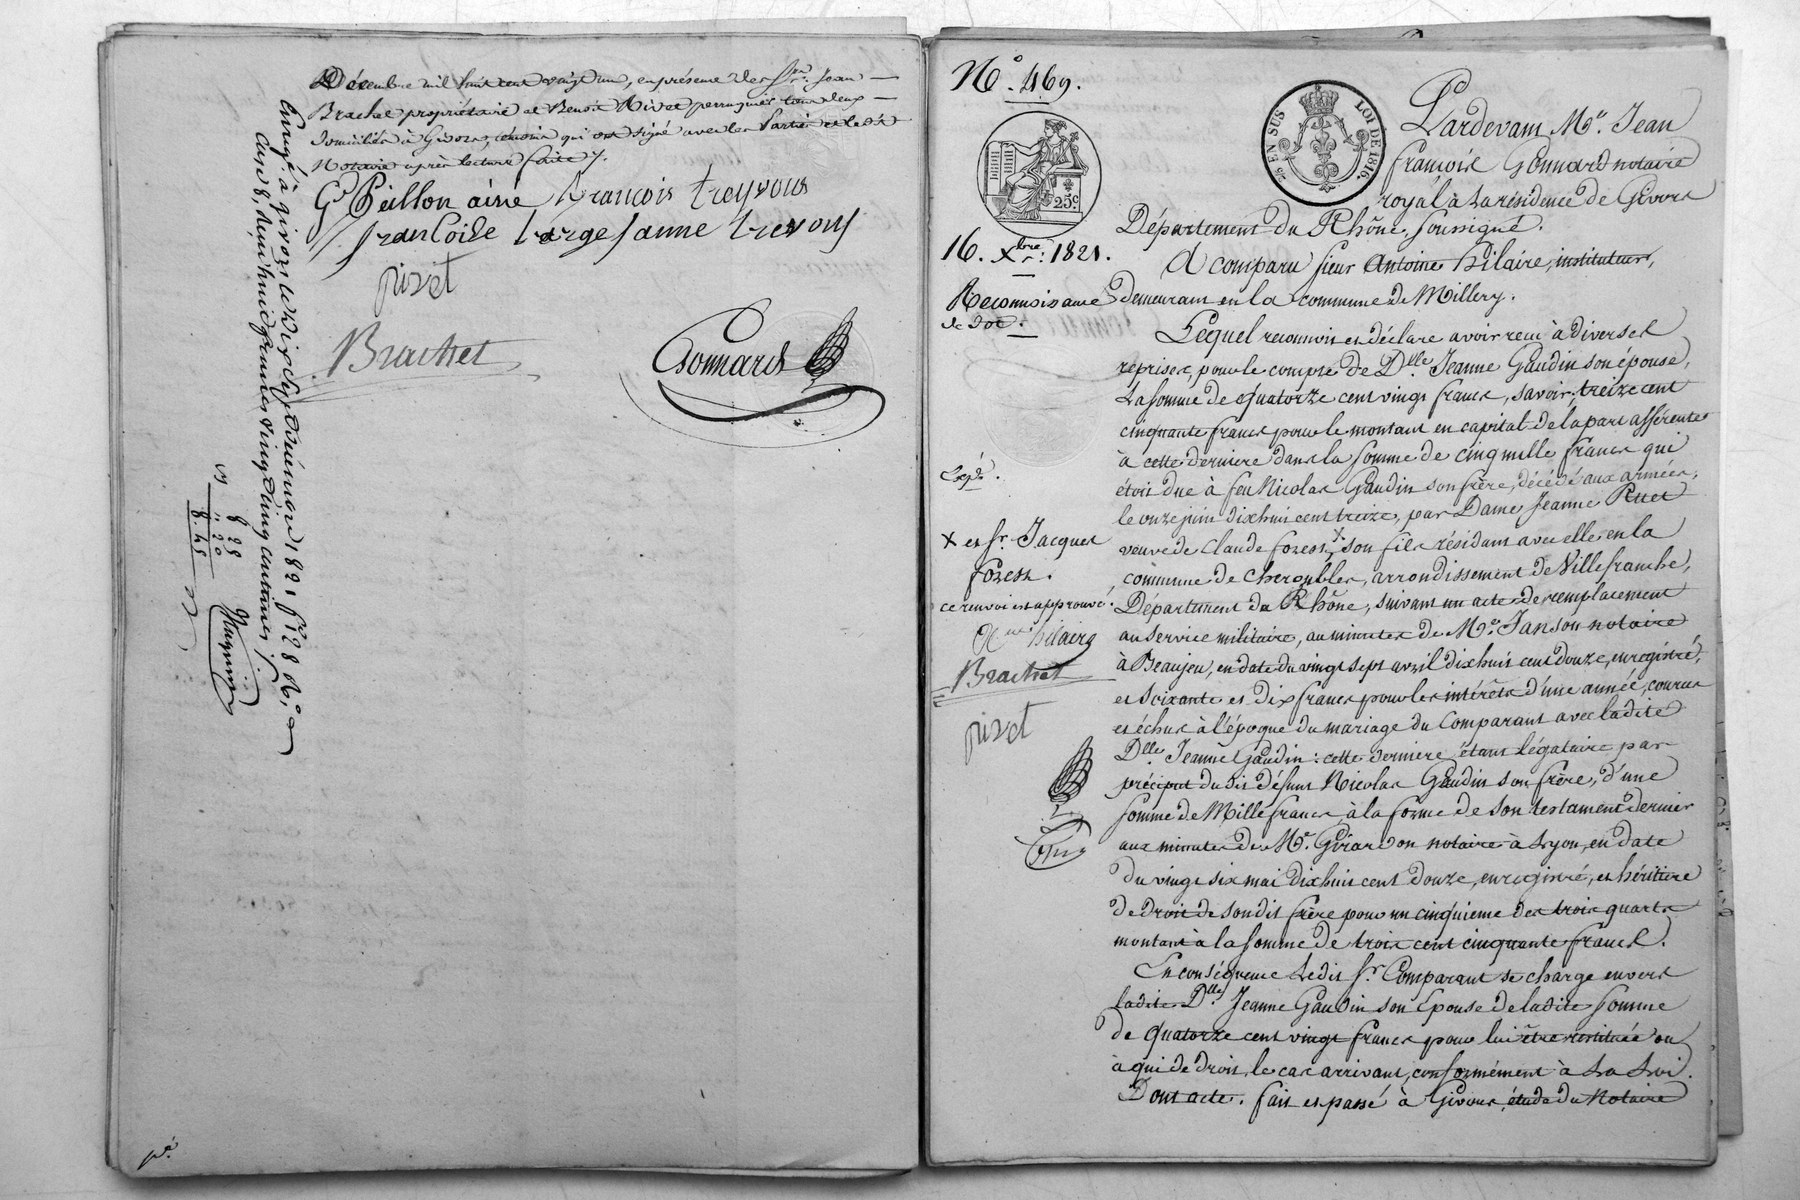 Décembre mil huit cent vingt un, en présence des Srs Jean
Brachet propriétaire et Benoit Rivet perruquier tous deux
domiciliés à Givors, témoins qui ont signé avec les Parties et le dit
Notaire après lecture faite /.
Gd Peillon ainé François treyvous
francoise Large Janne treyvous
rivet
Brachet
Gonnard
Enregé à givors le dix sept décembre 1821 fo 128 Ro
case 8, reçu huit francs vingt cinq centimes /.
8 25
" 20
8.45
pé
No 469.
25c
EN SUS
LOI DE 1816.
16. Xbre 1821.
Reconnoissance
de dot.
Pardevant Me Jean
françois Gonnard notaire
royal à la résidence de Givors
Département du Rhône, soussigné.
A comparu sieur Antoine hilaire, instituteur,
demeurant en la commune de Millery.
Lequel reconnoit et déclare avoir reçu à diverses
reprises, pour le compte de Dlle Jeanne Gaudin son épouse,
la somme de quatorze cent vingt francs, savoir: treize cent
cinquante francs pour le montant en capital de la part afférente
à cette derniere dans la somme de cinq mille francs qui
étoit due à feu Nicolas Gaudin son frère, décédé aux armées,
le onze juin dix huit cent treize, par Dame Jeanne
veuve de Claude forest, X son fils résidant avec elle en la
commune de Cheroubles, arrondissement de Villefranche,
Département du Rhône, suivant un acte de remplacement
au service militaire, aux minutes de Me Janson notaire
à Beaujeu, en date du vingt sept avril dix huit cent douze, enregistré,
et soixante et dix francs pour les intérêts d'une année, courus
et échus à l'époque du mariage du Comparant avec ladite
Dlle Jeanne Gaudin: cette derniere étant légataire par
préciput du dit défunt Nicolas Gaudin son frère, d'une
somme de Mille francs, à la forme de son testament dernier
aux minutes de Me Girardon notaire à Lyon, en date
du vingt six mai dix huit cent douze, enregistré, et héritière
de droit de son dit frère pour un cinquieme des trois quarts
montant à la somme de trois cent cinquante francs.
En conséquence ledit Sr Comparant se charge envers
ladite Dlle Jeanne Gaudin son Epouse de ladite somme
de quatorze cent vingt francs pour lui être restituée ou
à qui de droit, le cas arrivant, conformément à la Loi.
Dont acte. fait et passé à Givors, étude du Notaire
Expé.
X et Sr Jacques
forest.
ce renvoi est approuvé.
hilaire
Brachet
rivet